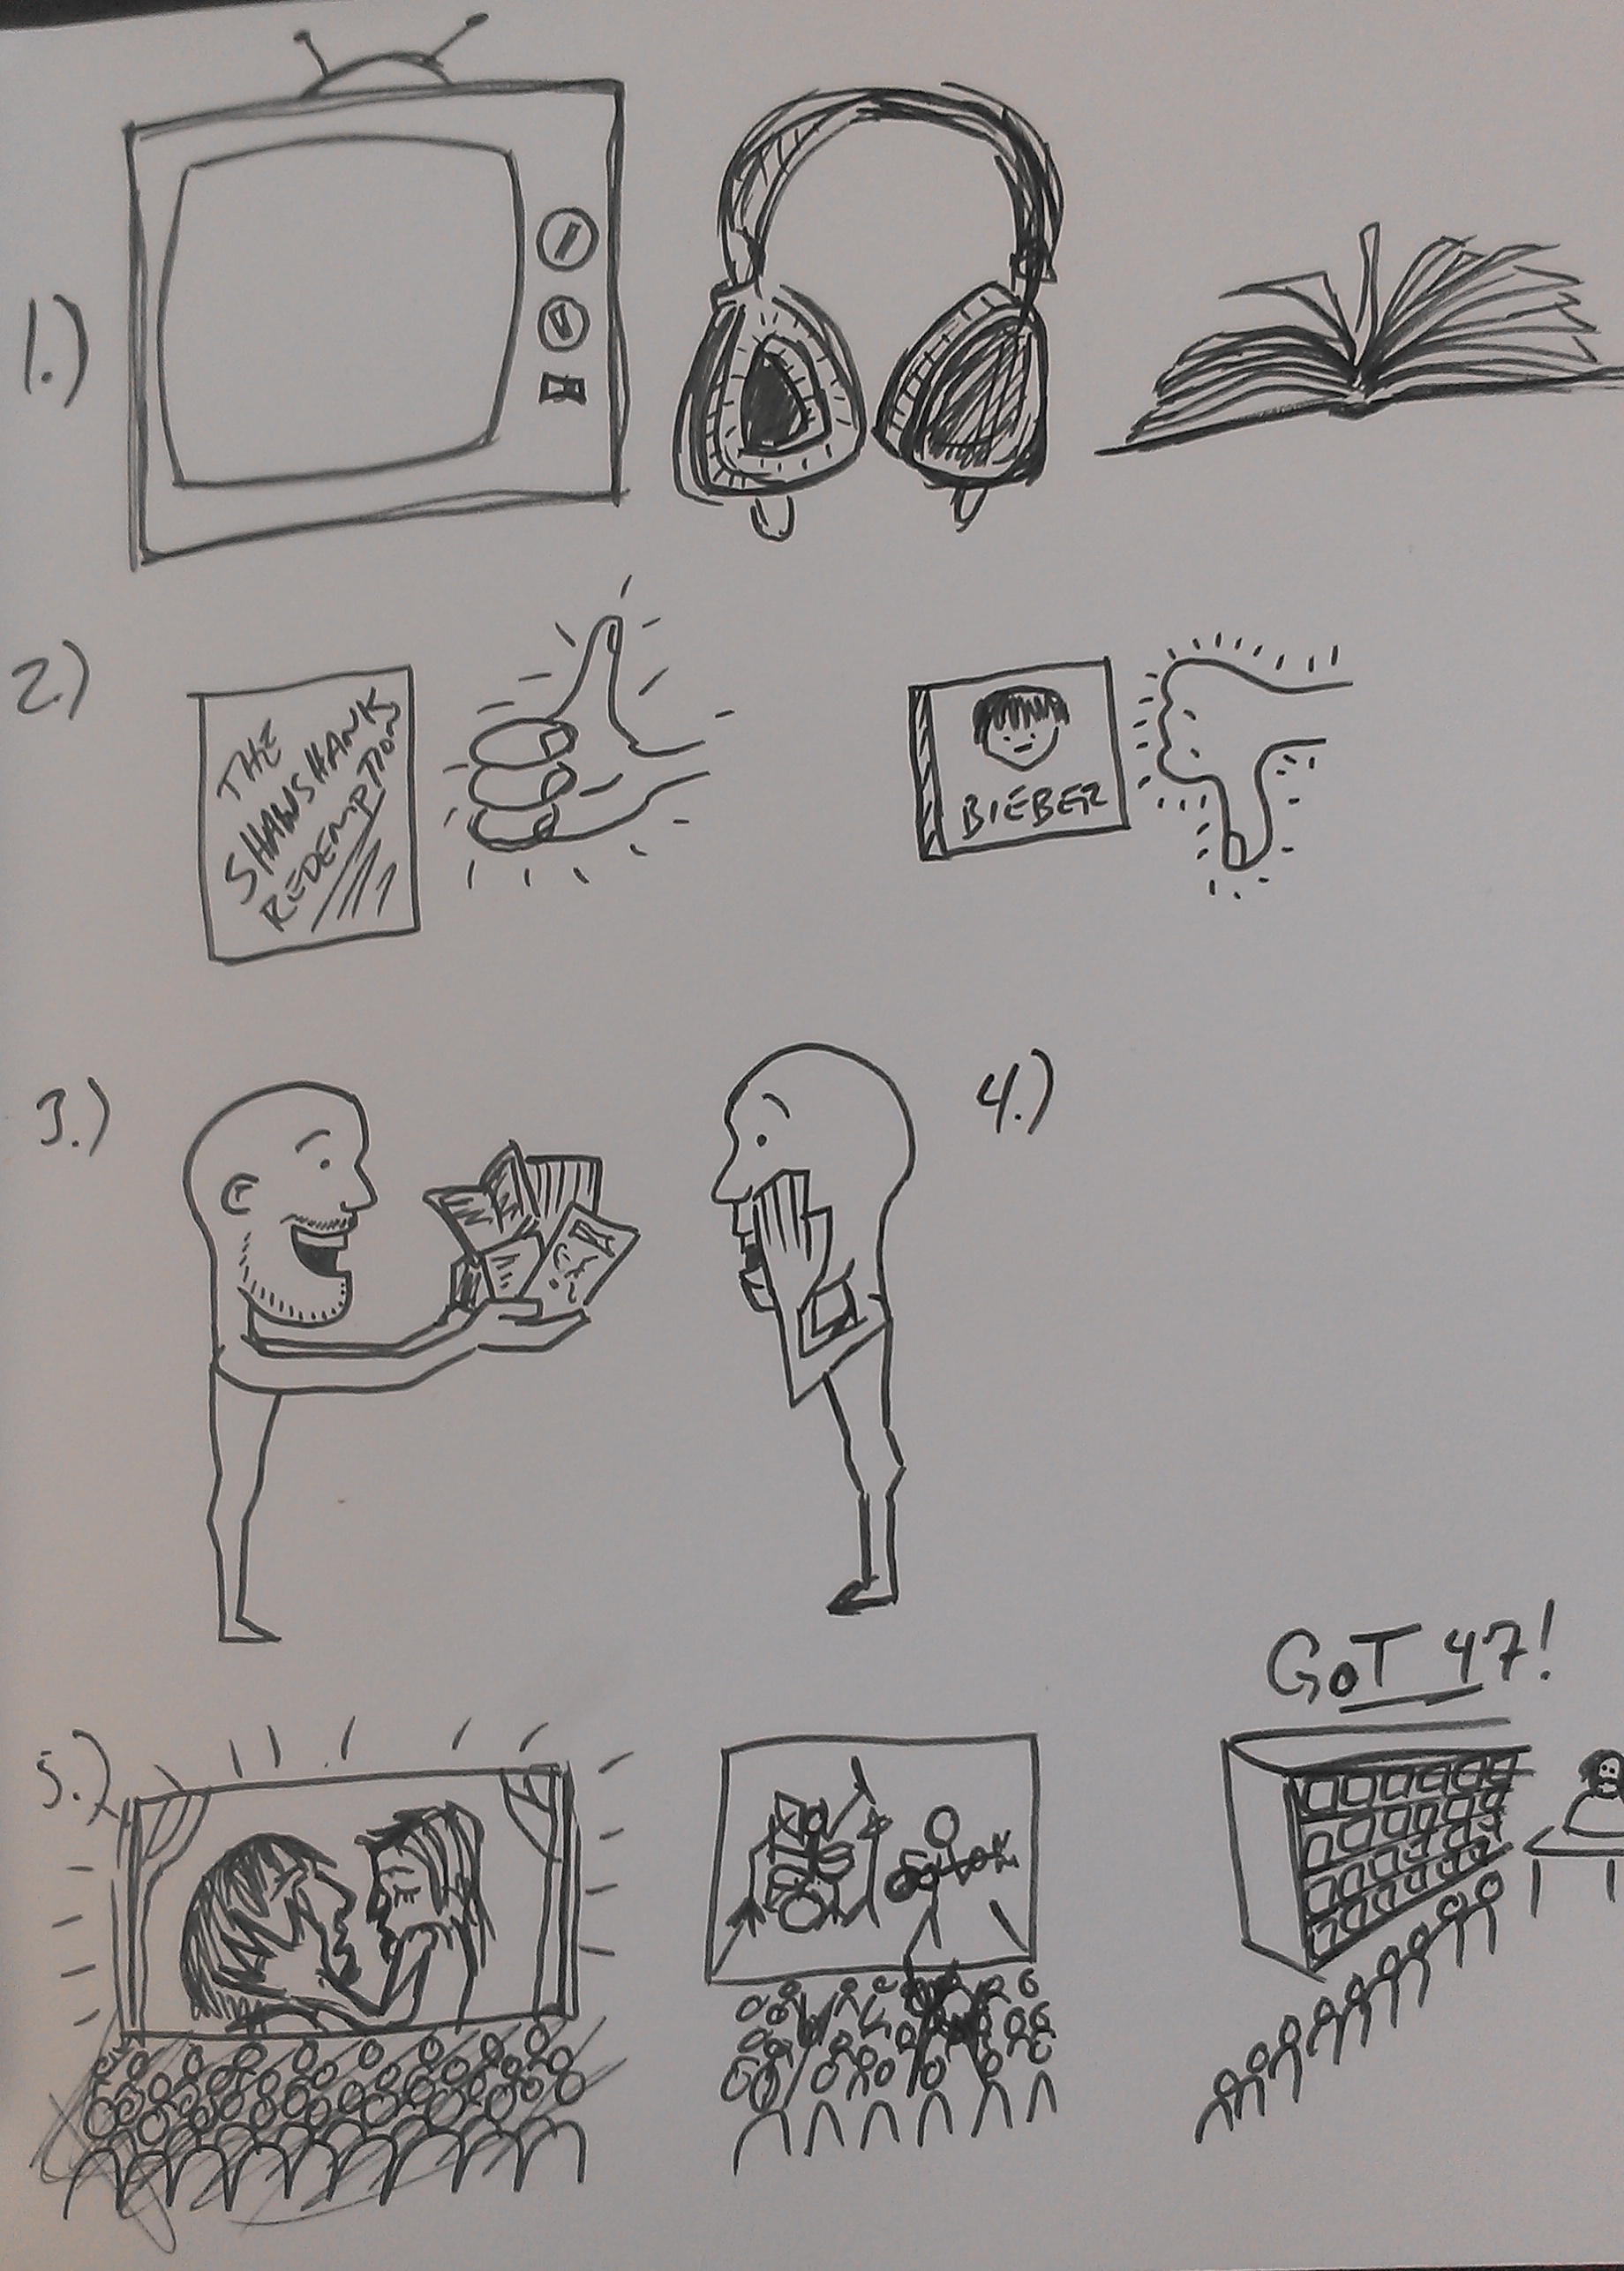 1.)
2.)
THE
SHAWSHANK
REDEMPTION
BIEBER
3.)
4.)
GoT 47!
5.)